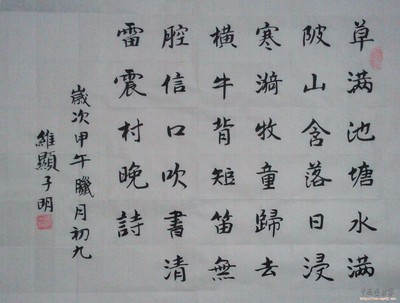 草滿池塘水滿
陂山含落日浸
寒漪牧童歸去
橫牛背短笛無
腔信口吹書清
雷震村晚詩
歲次甲午臘月初九
維顯子明